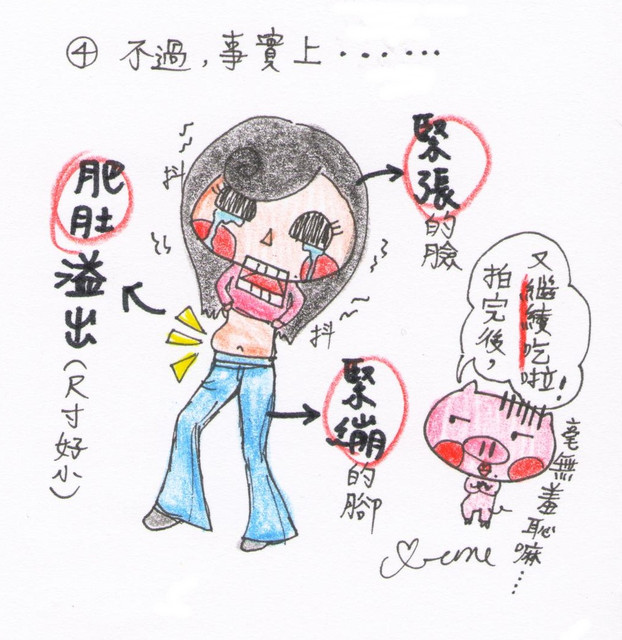 ④ 不過，事實上．．．．．．．
抖
肥肚
溢出
(尺寸好小)
緊張
的臉
抖
緊繃
的腳
拍完後，
又繼續吃啦！
毫無羞恥嘛…